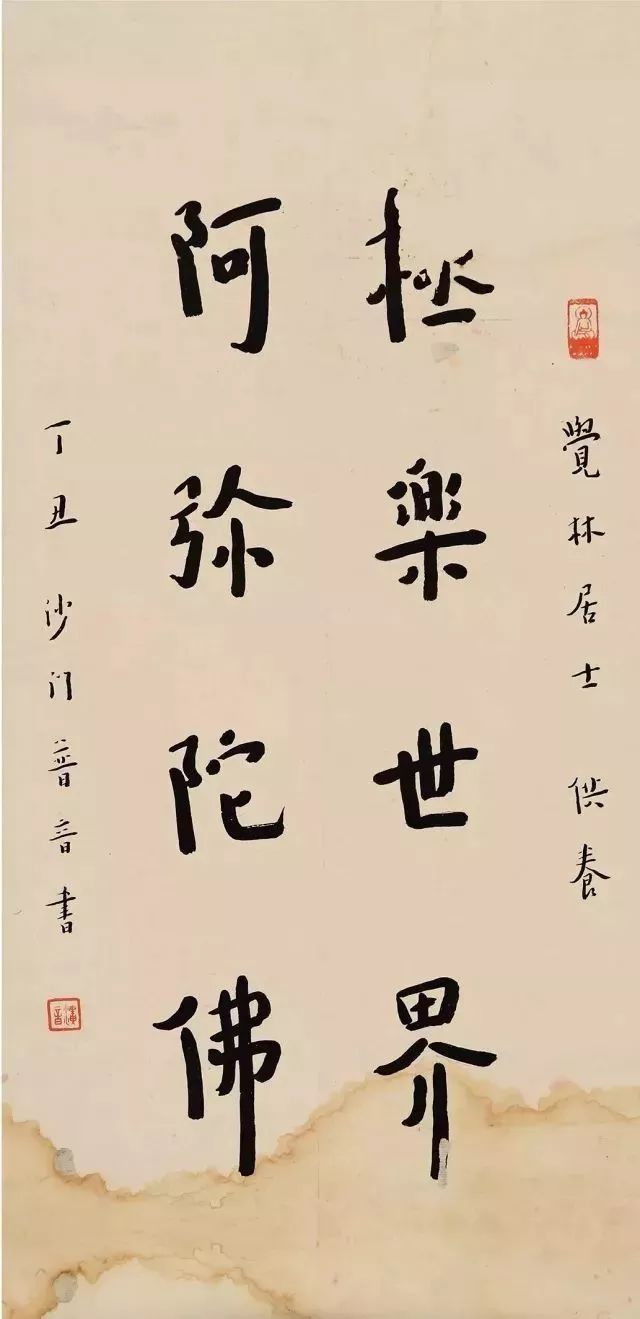 覺林居士 供養
极樂世界
阿弥陀佛
丁丑 沙门普音書